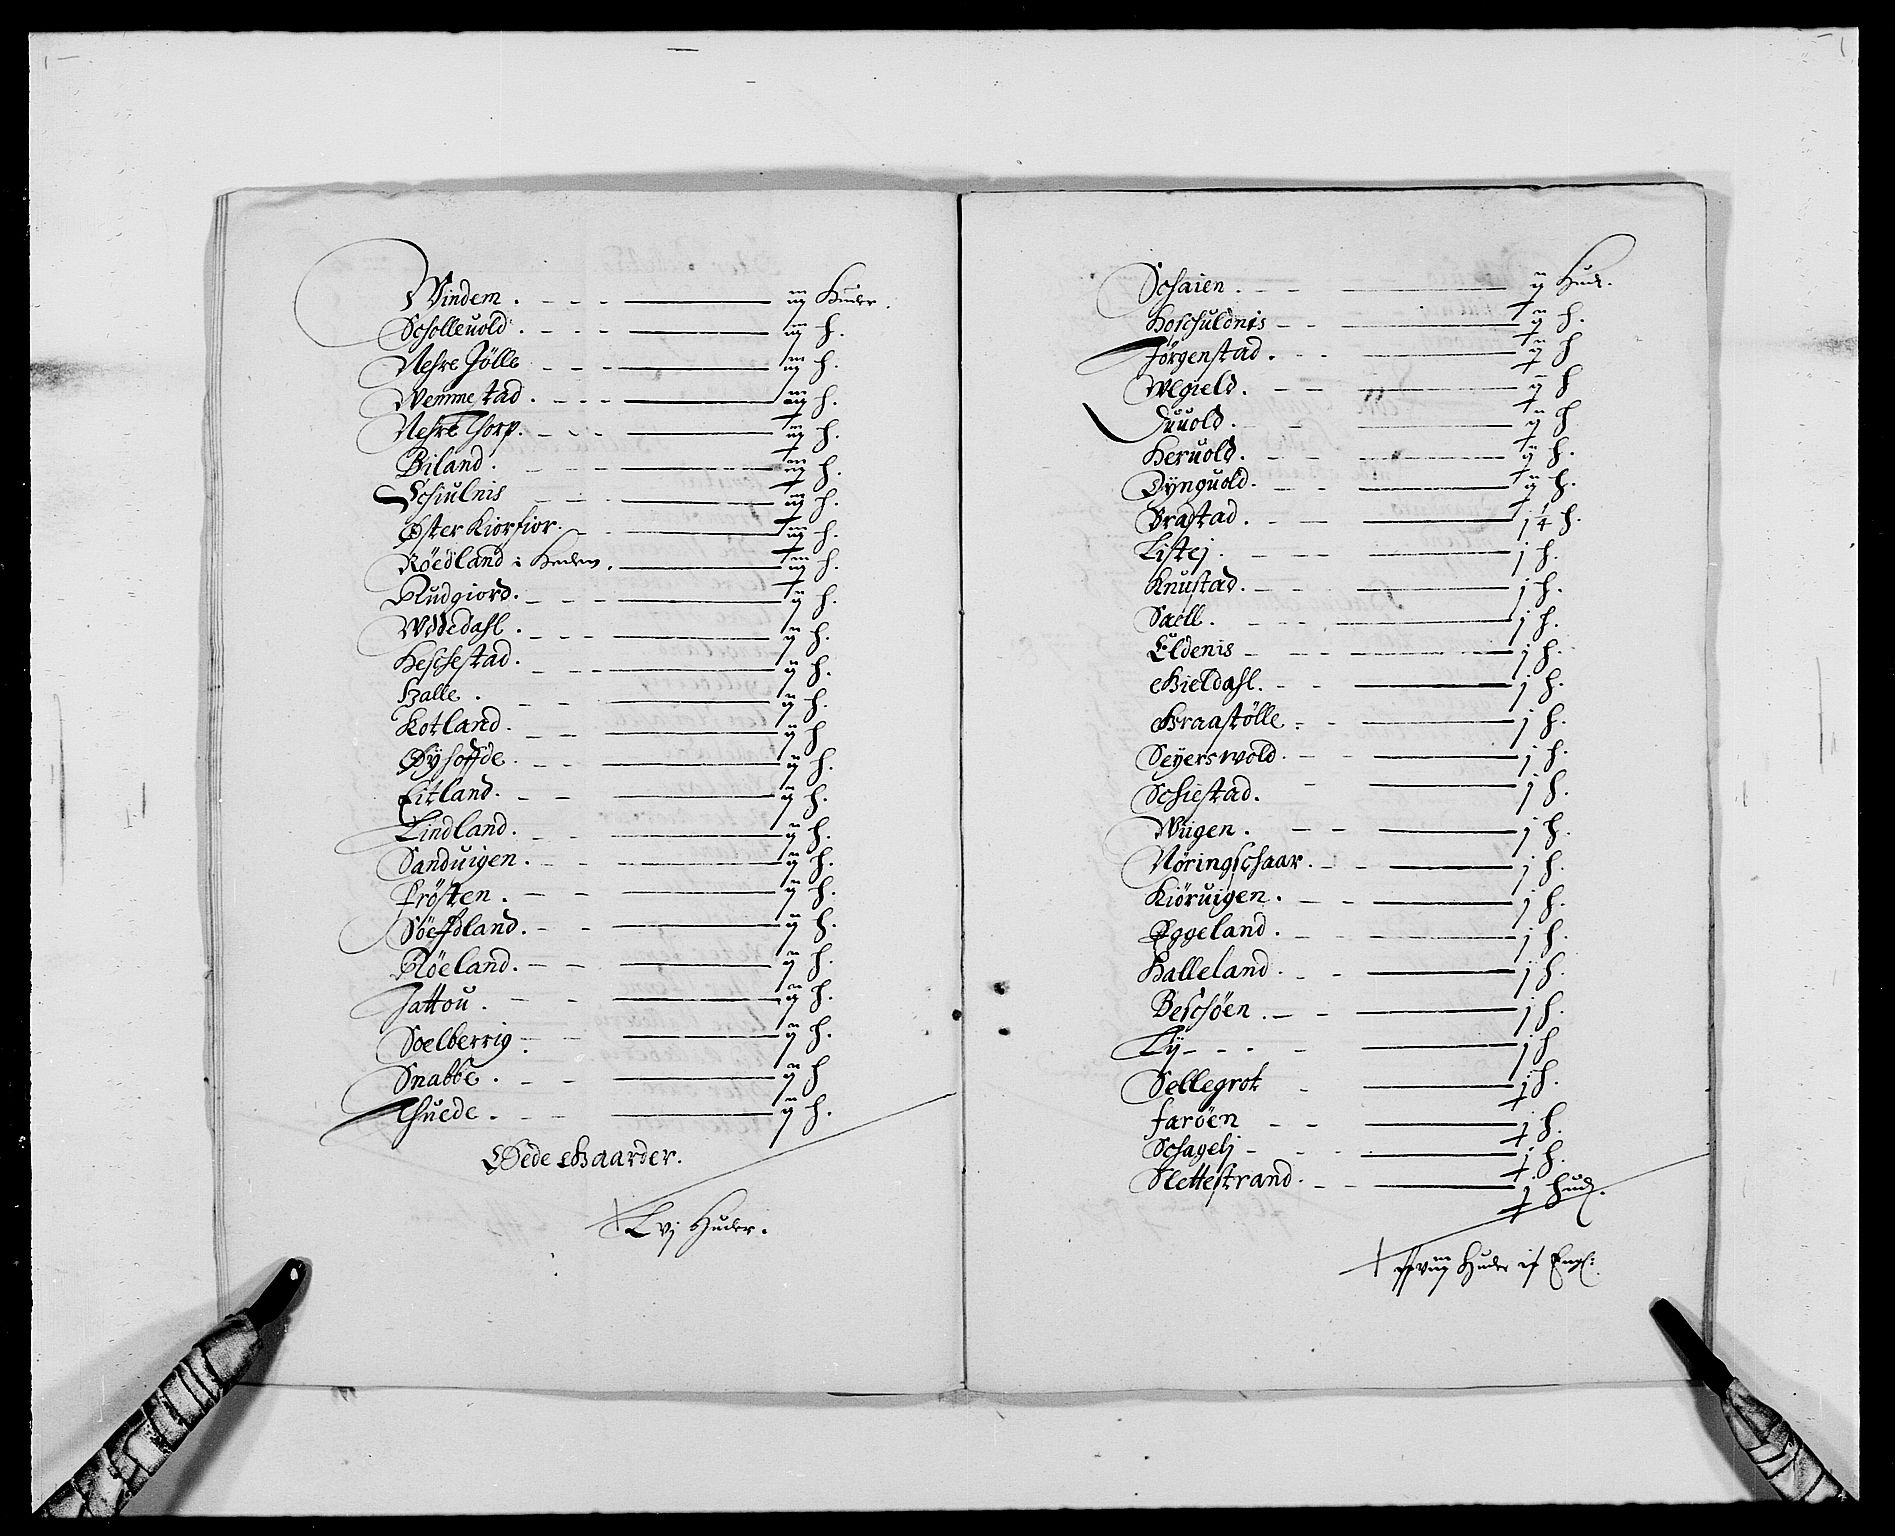 Windem. - - - iij Huder.
Scholleuold. - - - iij h.
Nehre Jölle - - - iij h.
Wemmestad. - - - iij h.
Nehre Thorp. - - - iij h.
Biland. - - - iij h.
Schiulnis - - - iij h.
Øster Kiorfior. - - iij h.
Röedland i Heden. iij h.
Rudgiord. - - - ij h.
Wodedahl. - - - ij h.
Heschestad. - - - ij h.
Halle. - - ij h.
Kotland. - - ij h
Øyhoffde. - - - ij h.
Eitland. - - ij h.
Lindland. - - ij h.
Sanduigen. - - ij h.
Frösten. - - ij h.
Söeffdland. - - ij h.
Röeland. - - ij h.
Jattou. - - ij h.
Soelberrig - - ij h.
Snabbe. - - ij h
Thuede. - - ij h.
Øede Gaarder.
Lvj Huder.
Schaien. - - ij Hud.
Hoschuldnis - - ij h.
Jörgenstad. - - ij h
Wegield. - - ij h
Duuold. - - ij h.
Heruold. - - ij h.
Dÿnguold. - - ij h.
Brastad. - - j 1/4 h.
Listej. - - - j h.
Knustad. - - - j h.
Saell. - - - j h.
Eldenis - - - j h.
Gieldahl. - - j h.
Braastölle. - - j h.
Seyerswold. - - j h.
Schiestad. - j h.
Wiigen. - - j h.
Nöringschaar. - - j h.
Kiöruigen. - - j h.
Eggeland. - - j h.
Halleland. - - j h.
Beschöen. - - j h.
Lÿ - - - - j h
Sellegrot - j h.
Faröen - - j h.
Schagelj - - - j h.
Slettestrand. - - j hud.
Huder if Engl: